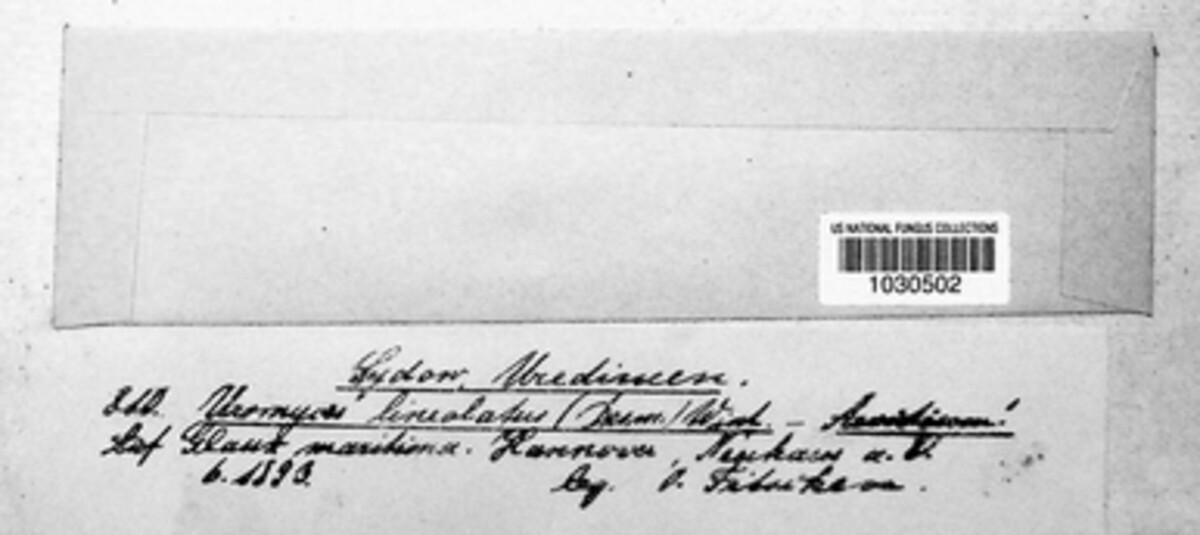 US NATIONAL FUNGUS COLLECTIONS
1030502
Sydow, Uredineen.
Uromyces lineolatus (Desm.) Wint. – Aecidium!
Auf Glaux maritima. Hannover, Neuhaus a. O.
6. 1893. leg.